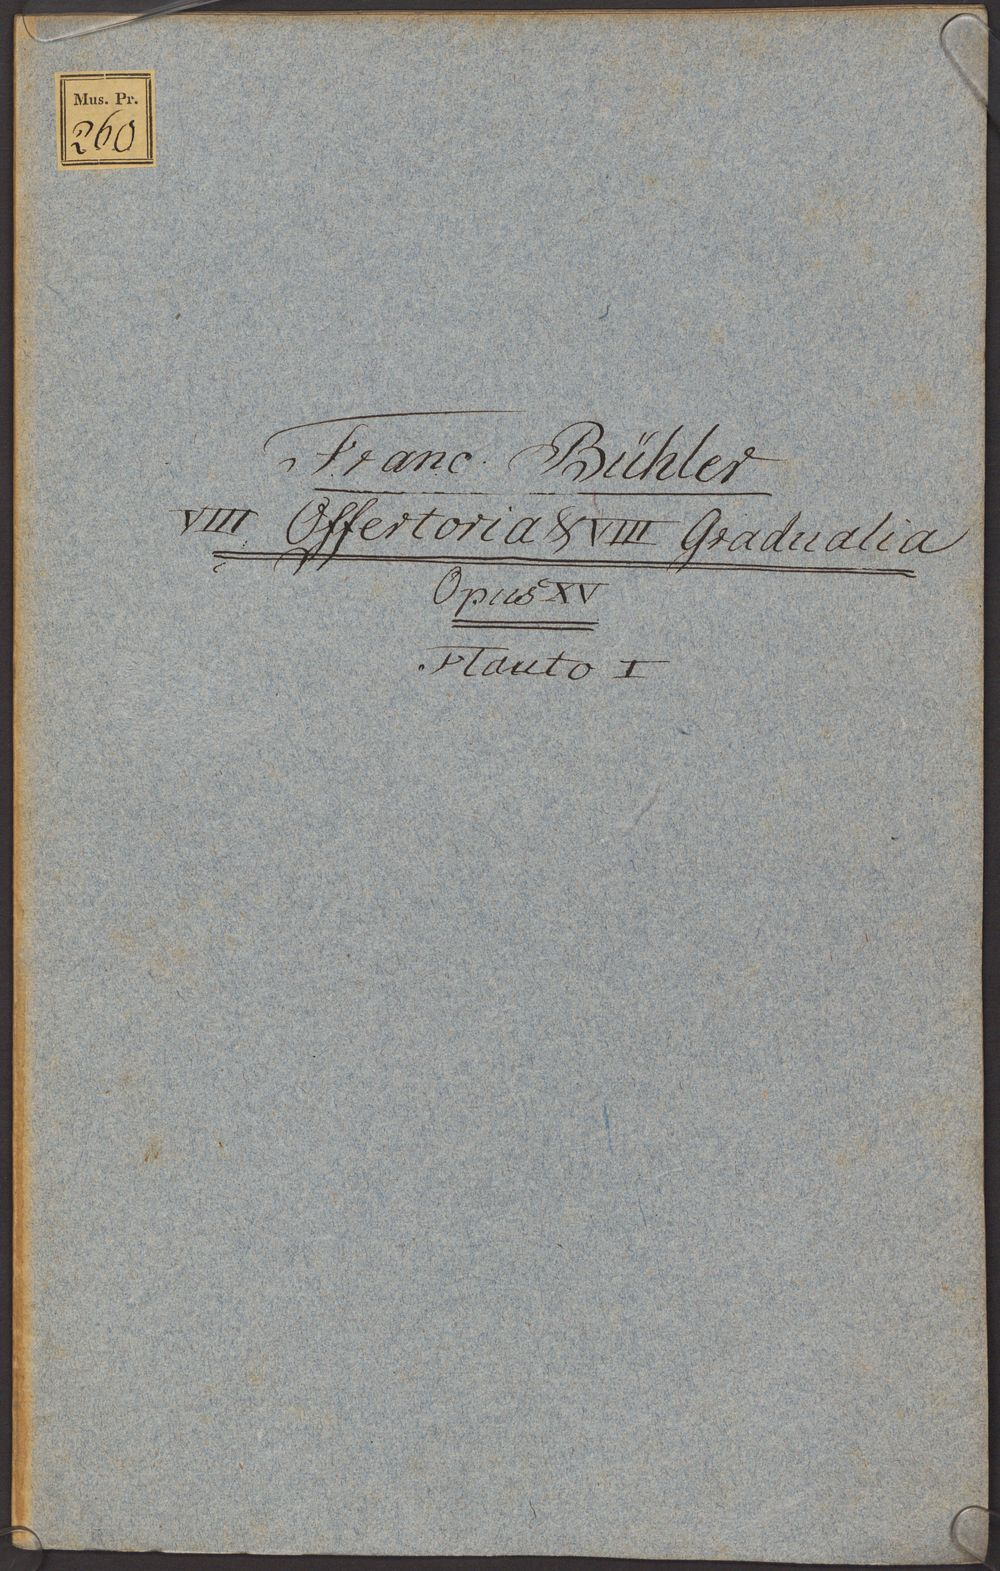 Mus. Pr.
260
Franc. Bühler
VIII Offertoria & VIII Gradualia
Opus XV
Flauto I